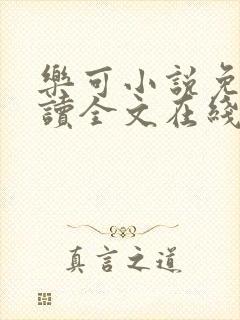 樂可小說免
讀全文在綫
真言之道